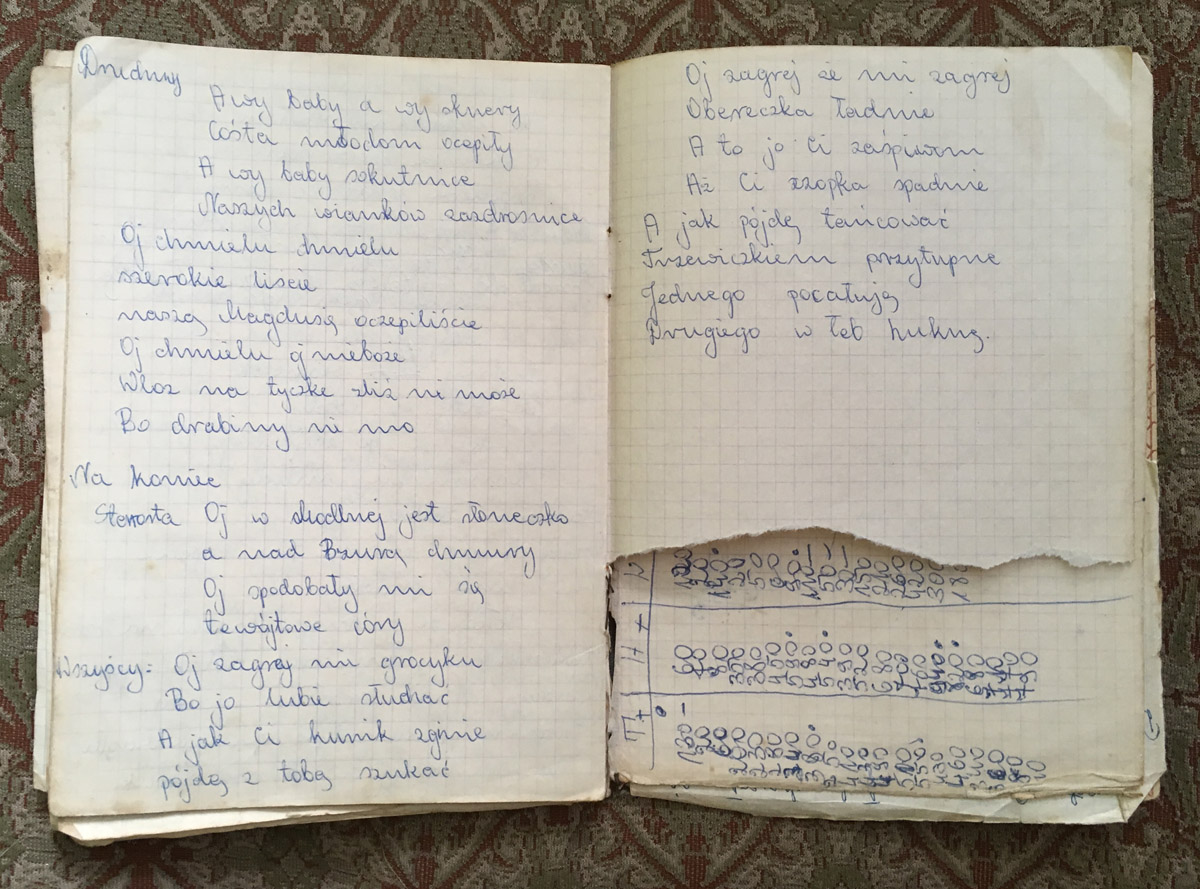 Druchny
A wy baby a wy sknery
Cośta młodom ocepiły
A wy baby sekutnice
Naszych wianków zazdrosnice
Oj chmielu chmielu
szerokie liscie
naszą Magdusią oczepiliście
Oj chmielu oj nieboże
Wloz na tyczke zliź ni może
Bo drabiny ni mo
Na koniec
Starosta Oj w skodlnej jest słoneczko
a nad Bzurą chmury
Oj spodobały mi się
te wójtowe córy
Wszyścy: Oj zagrej mi grocyku
Bo jo lubie słuchać
A jak Ci kunik zginie
pójdę z tobą szukać
Oj zagrej że mi zagrej
Obereczka ładnie
A to jo Ci zaśpiwom
Aż Ci czopka spadnie
A jak pójdę tańcować
Trzewiczkiem przytupne
Jednego pocałują
Drugiego w łeb huknę.